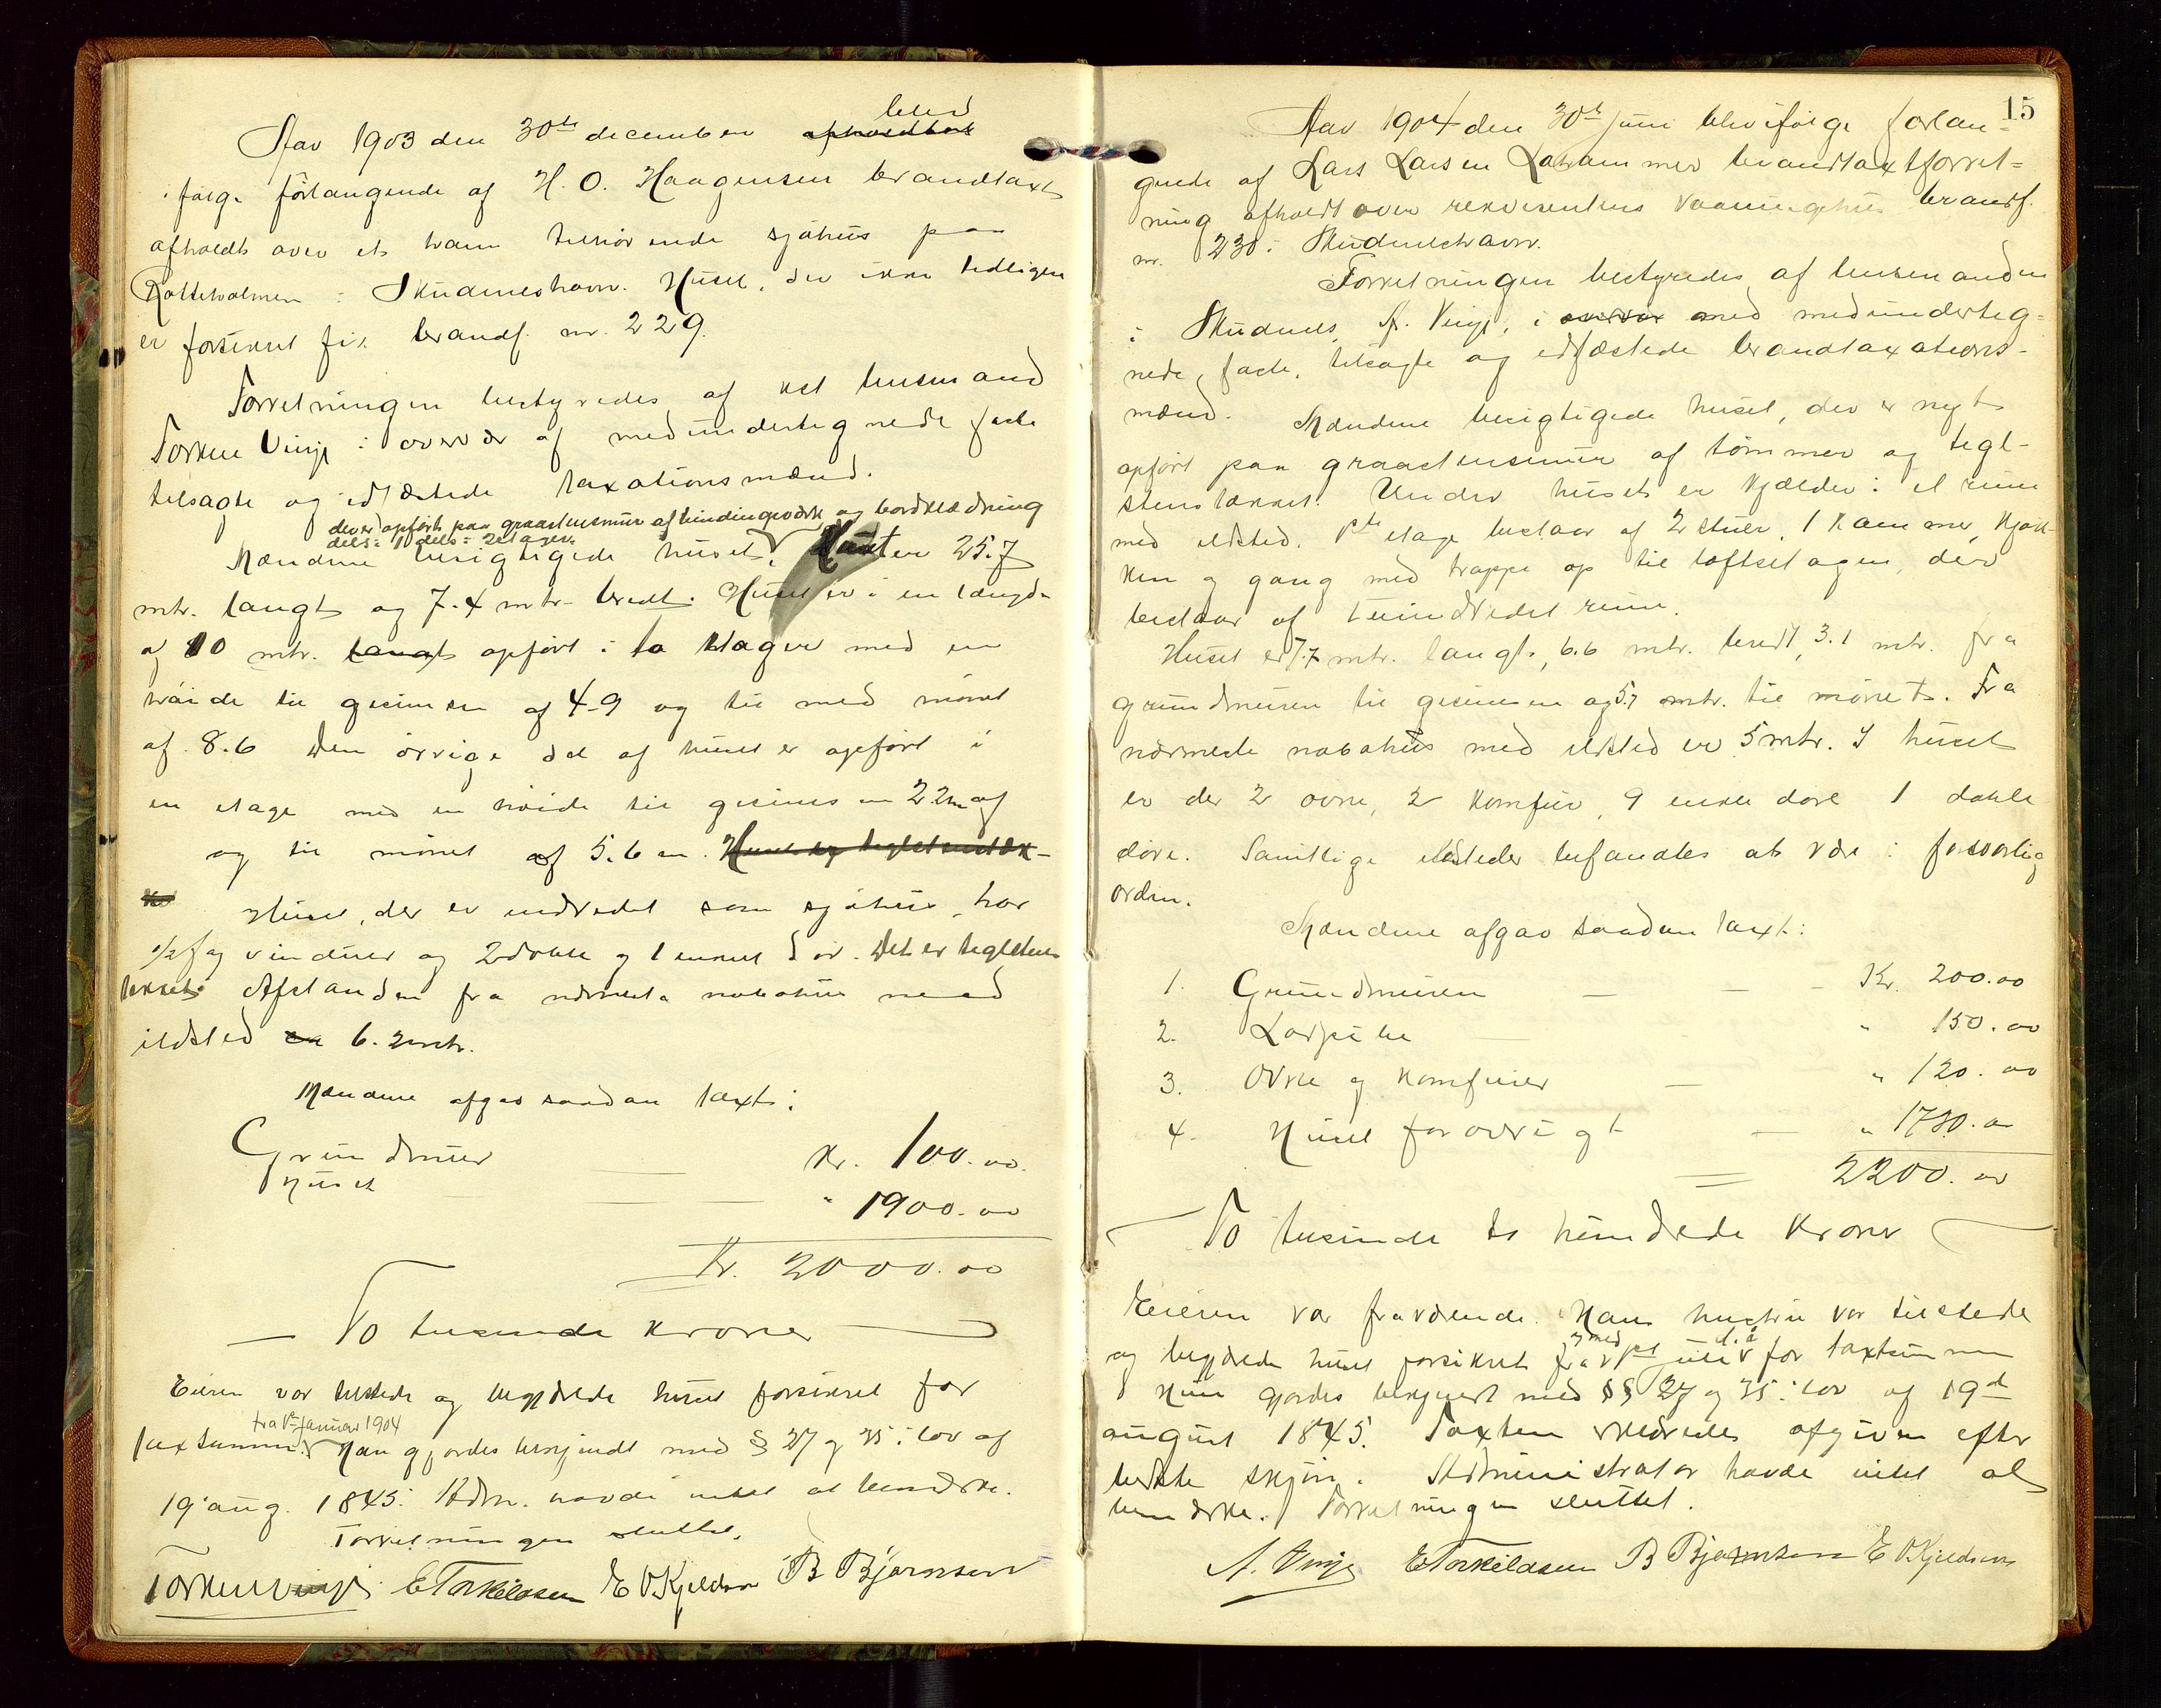 Aar 1903 den 30te december blev afholdtes
ifølge forlangende af H. O. Haagensen brandtaxt
afholdt over et ham tilhørende sjøhus paa
Rotteholmen i Skudeneshavn. Huset, der ikke tidligere
er forsikret fik brandf. nr. 229.
Forretningen bestyredes af kst lensmand
Torkell Vinje i overvær af medundertegnede faste
tilsagte og edfæstede taxationsmænd.
der er opført paa graastensmur af bindingsværk og bordklædning
dels i 1 dels i 2 etager.
Mændene besigtigede huset, Huset er 25.7
mtr. langt og 7.4 mtr. bredt. Huset er i en længde
af 10 mtr. langt opført i to etager med en
høide til gesimsen af 4.9 og til med mønet
af 8.6 Den øvrige del af huset er opført i
en etage med en høide til gesimsen 2.2m af
og til mønet af 5.6 m. Huset er teglstenstæk-
ket
Huset, der er indredet som sjøhus, har
fag vinduer og 2 doble og 1 enkel dør. Det er teglstens
tækket. Afstanden fra nærmeste nabohus med
ildsted er 6.2 mtr.
Mændene afgav saadan taxt:
Grundmur Kr. 100.00.
Huset " 1900.00
Kr. 2000.00
To tusinde kroner
Eieren var tilstede og begjærede huset forsikret for
fra 1te januar 1904
taxtsummen. Han gjordes bekjendt med § 27 og 35 i lov af
19 aug. 1845. Adm. havde intet at bemærke.
Forretningen sluttet.
Torkell Vinje E Torkildsen E O Kjeldsen B Bjørnsen
15
Aar 1904 den 30te juni blev ifølge forlan=
gende af Lars Larsen Lahammer brandtaxtforret=
ning afholdt over rekvirentens vaaningshus brandf.
nr. 230 i Skudeneshavn.
Forretningen bestyredes af lensmanden
i Skudenes, A. Vinje, i overvær med medunderteg=
nede, faste, tilsagte og edfæstede brandtaxations-
mænd. Mændene besigtigede huset, der er nyt
opført paa graastensmur af tømmer og tegl-
stenstækket. Under huset er kjælder i et rum
med ildsted. 1ste etage bestaar af 2 stuer, 1 kammer, kjøk
ken og gang med trappe op til loftsetagen, der
bestaar af 1 uindredet rum.
Huset er 7.7 mtr. langt, 6.6 mtr. bredt, 3.1 mtr. fra
grundmuren til gesimsen og 5.7 mtr. til mønet. Fra
nærmeste nabohus med ildsted er 5 mtr. I huset
er der 2 ovne, 2 komfur, 9 enkle døre 1 doble
døre. Samtlige ildsteder befandtes at være i forsvarlig
orden.
Mændene afgav saadan taxt:
1. Grundmuren Kr. 200.00
2. Skorpibe " 150.00
3. Ovne og komfurer " 120.00
4. Huset forøvrigt " 1730.00
2200.00
To tusinde to hundrede kroner
Eieren var fraværende. Hans hustru var tilstede
og med d.å.
og begjærede huset forsikret fra 1ste juli for taxtsummen
Hun gjordes bekjendt med §§ 27 og 35 i lov af 19de
august 1845. Taxten erklæredes afgiven efter
bedste skjøn. Administrator havde intet at
bemærke. Forretningen sluttet.
A. Vinje E Torkildsen B Bjørnsen E O Kjeldsen